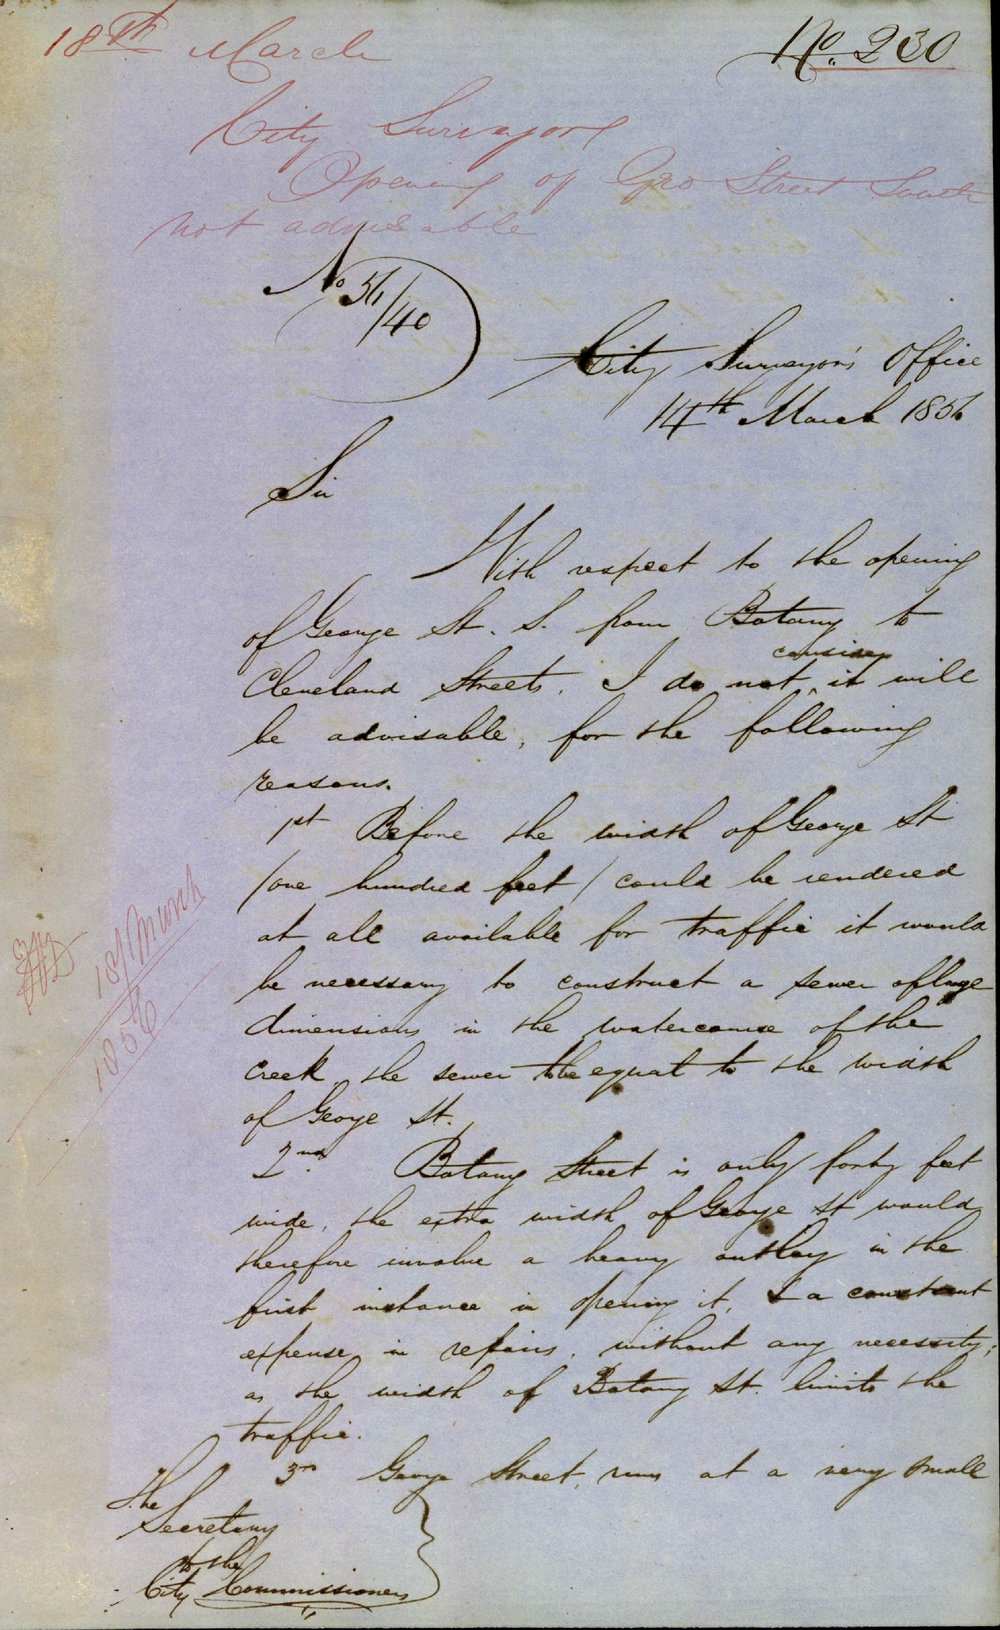 18th March
No. 230
City Surveyor
Opening of Geo Street South
not advisable
No 56/40
City Surveyor's Office
14th March 1856
Sir
With respect to the opening
of George St. S. from Botany to
consider
Cleveland Streets, I do not it will
be advisable, for the following
reasons.
1st Before the width of George St
(one hundred feet) could be rendered
at all available for traffic it would
be necessary to construct a sewer of large
dimensions in the watercourse of the
creek, the sewer to be equal to the width
of George St.
2nd Botany Street is only forty feet
wide, the extra width of George St would
therefore involve a heavy outlay in the
first instance in opening it, & a constant
expense in repairs, without any necessity;
as the width of Botany St. limits the
traffic.
3rd George Street, runs at a very small
The
Secretary
to the
City Commissioners
18/March
1856